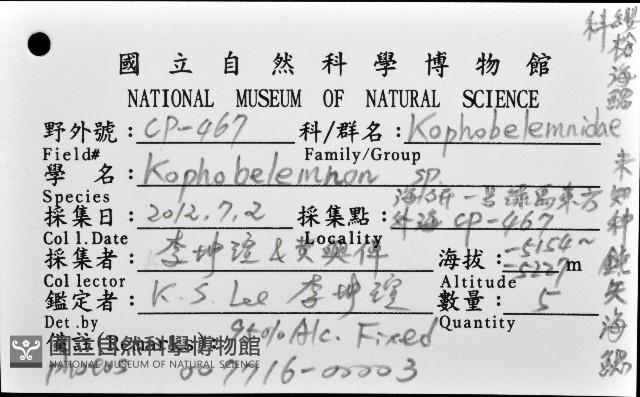 國立自然科學博物館
NATIONAL MUSEUM OF NATURAL SCIENCE
野外號：CP-467 科/群名：Kophobelemnidae
Field# Family/Group
學 名：Kophobelemnon sp.
Species
採集日：2012.7.2 採集點：海研一號 綠島東方外海 CP-467
Col l. Date Locality
採集者：李坤瑄 & 黃興倬 海拔：-5154~-5227 m
Col lector Altitude
鑑定者：K.S. Lee 李坤瑄 數量：5
Det .by Quantity
備註(Remarks)：95% Alc. Fixed
國立自然科學博物館
NATIONAL MUSEUM OF NATURAL SCIENCE
007716-00003
纓松海鰓科
未知種鈍矢海鰓